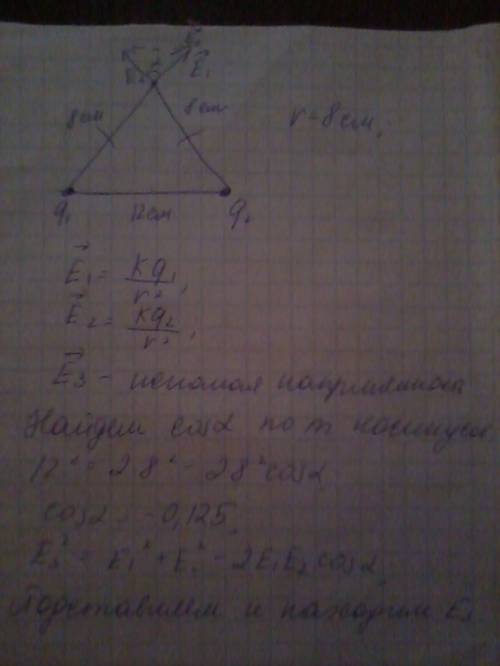 E₁
8см
8см
r=8см,
q₁ 12см q₂
E₁ = kq₁/r²,
E₂ = kq₂/r²,
E₃ - искомая напряжённость
Найдем cosα по т косинусов
12² = 2·8² - 2·8²cosα,
cosα = -0,125,
E₃² = E₁² + E₂² - 2E₁E₂cosα,
Подставляем и находим E₃